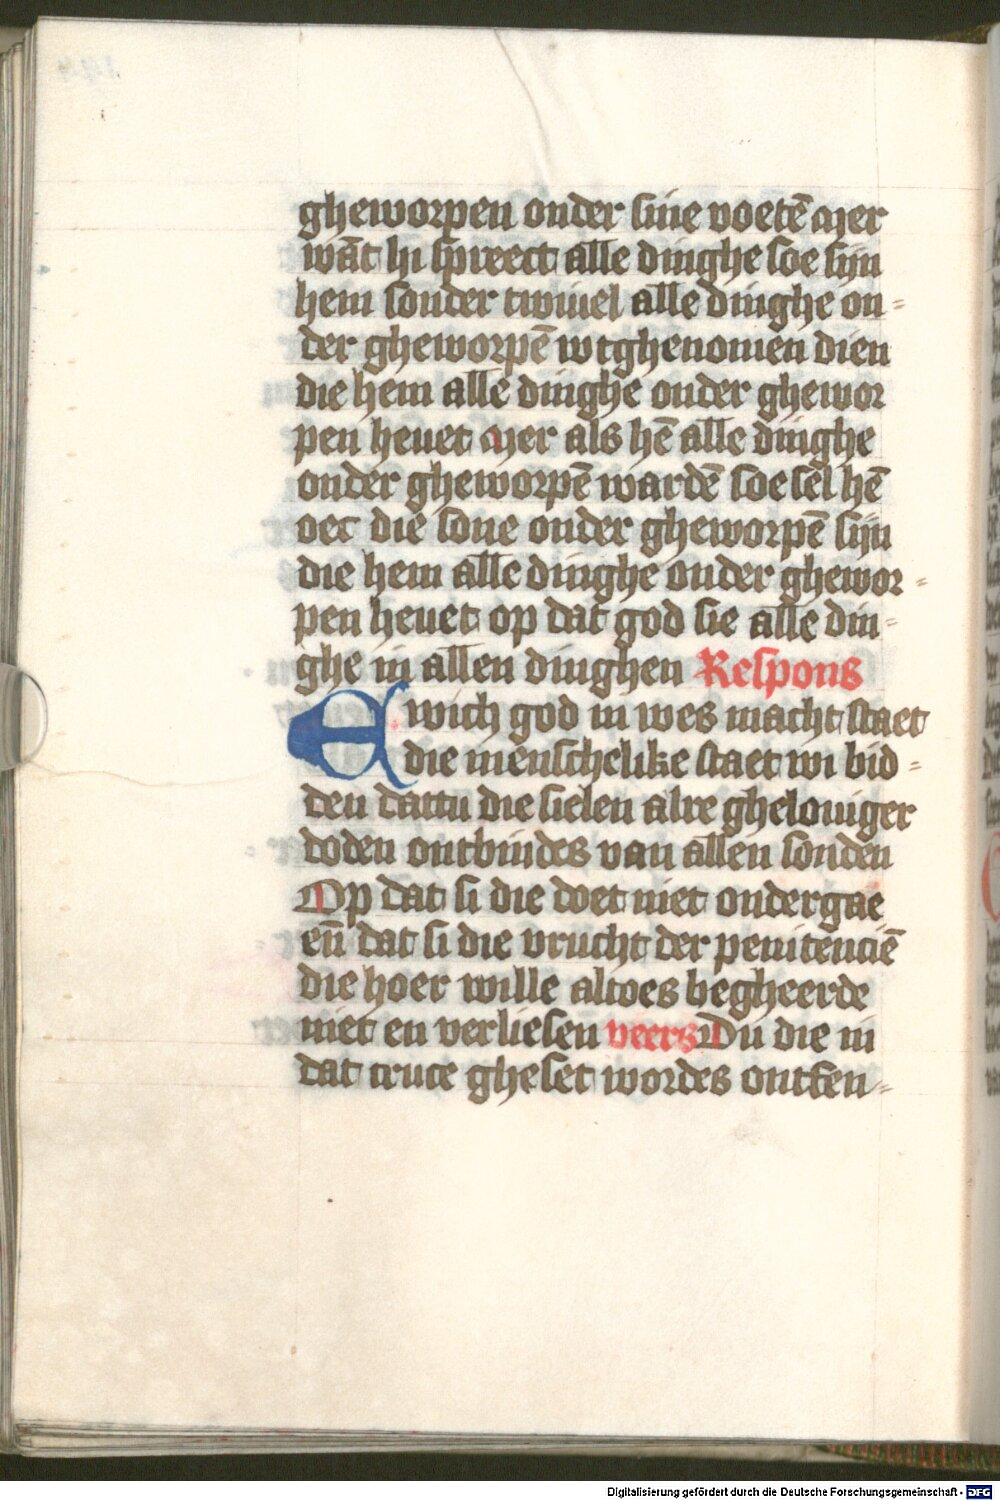 gheworpen onder sine voetē Mer
wāt hi spreect alle dinghe soe sijn
hem sonder twiuel alle dinghe on-
der gheworpē wtghenomen dien
die hem alle dinghe onder ghewor
pen heuet Mer als hē alle dinghe
onder gheworpē wardē soe sel hē
oec die sone onder gheworpē sijn
die hem alle dinghe onder ghewor-
pen heuet op dat god sie alle din-
ghe in allen dinghen Respons
Ewich god in wes macht staet
die menschelike staet wi bid-
den dattu die sielen alre gheloviger
doden ontbindes van allen sonden
Op dat si die doet niet ondergae
eñ dat si die vrucht der penitenciē
die hoer wille altoes begheerde
niet en verliesen veers Du die in
dat cruce gheset wordes ontfen-
Digitalisierung gefördert durch die Deutsche Forschungsgemeinschaft - DFG